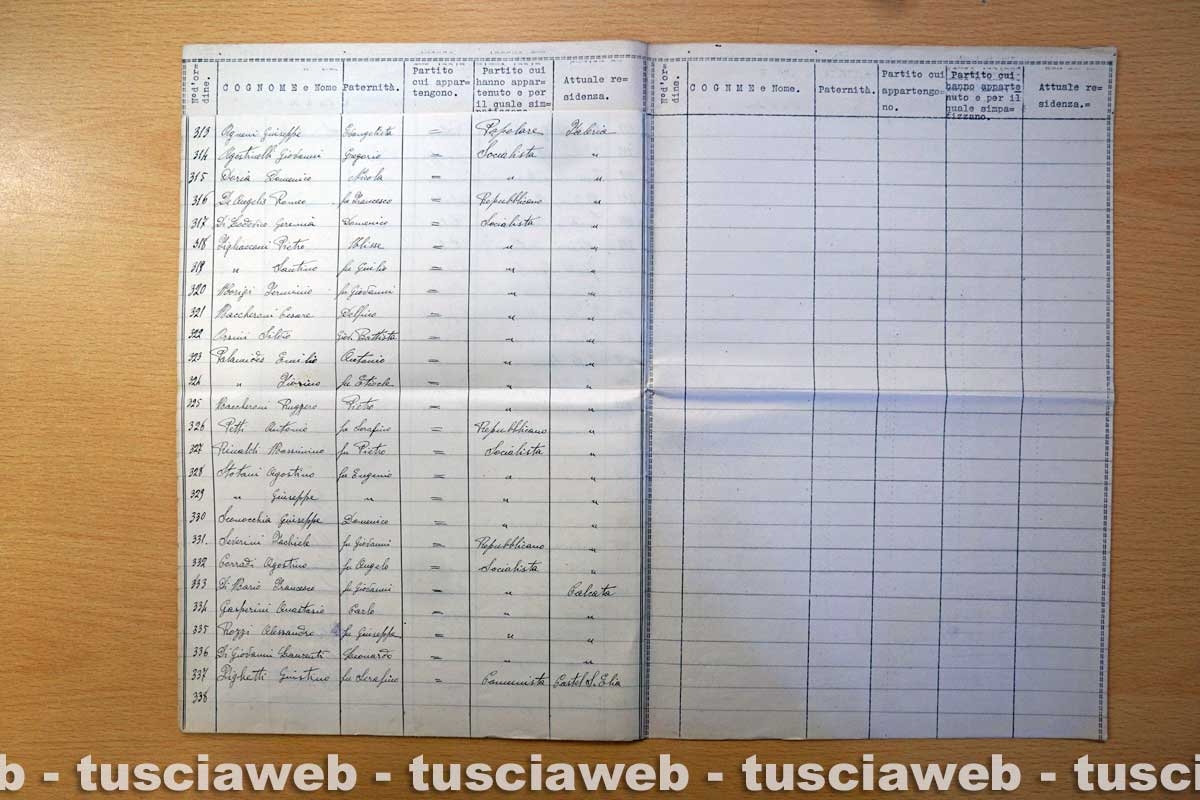 N°d'or=
dine.
C O G N O M E e Nome.
Paternità.
Partito
cui appar=
tengono.
Partito cui
hanno appar=
tenuto e per
il quale sim=
Attuale re=
sidenza.
N°d'or=
dine.
C O G N M E e Nome.
Paternità.
Partito cui
appartengo=
no.
Partito cui
hanno apparte
nuto e per il
quale simpa=
tizzano.
Attuale re=
sidenza.=
313 Agneni Giuseppe Evangelista = Popolare Faleria
314 Agostinelli Giovanni Gregorio = Socialista "
315 Doria Domenico Nicola = " "
316 De Angelis Romeo fu Francesco = Repubblicano "
317 Di Lodovico Geremia Domenico = Socialista "
318 Pietro Ulisse = " "
319 " Santino fu Giulio = " "
320 fu Giovanni = " "
321 Maccheroni Cesare Delfino = " "
322 Orsini Silvio Gio. Battista = " "
323 Palamides Emilio Antonio = " "
324 " fu Eteocle = " "
325 Maccheroni Ruggero Pietro = " "
326 Petti Antonio fu Serafino = Repubblicano "
327 Rinaldi Massimino fu Pietro = Socialista "
328 Agostino fu Eugenio = " "
329 " Giuseppe " = " "
330 Sconocchia Giuseppe Domenico = " "
331 Severini fu Giovanni = Repubblicano "
332 Corradi Agostino fu Angelo = Socialista "
333 Di Mario Francesco fu Giovanni = " Calcata
334 Gasperini Anastasio Carlo = " "
335 Rozzi Alessandro fu Giuseppe = " "
336 Di Giovanni Laurenti Leonardo = " "
337 Giustino fu Serafino = Comunista Castel S. Elia
338
b - tusciaweb - tusciaweb - tusciaweb - tusci